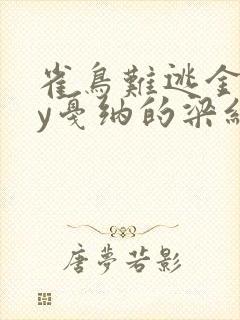 雀鳥難逃金
y戛纳的梁
唐夢若影